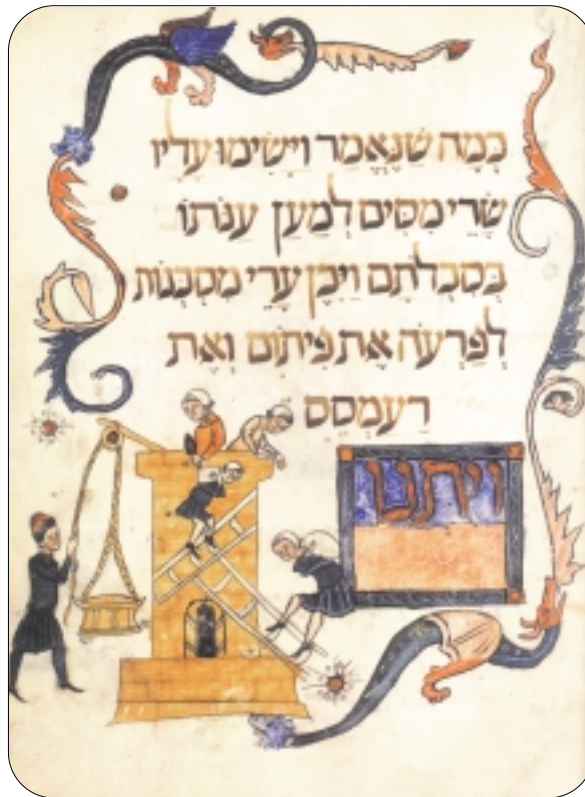 כמה שנאמר וישימו עליו
שרי מסים למען ענתו
בסבלתם ויבן ערי מסכנות
לפרעה את פיתום ואת
רעמסס
ויתנו